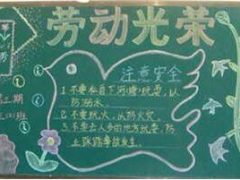 劳动光荣
注意安全
1.不要私自下河(塘)玩耍,以
防溺水.
2.不要玩火,以防火灾.
3.不要去人多的地方玩耍,防
止踩踏事故发生.